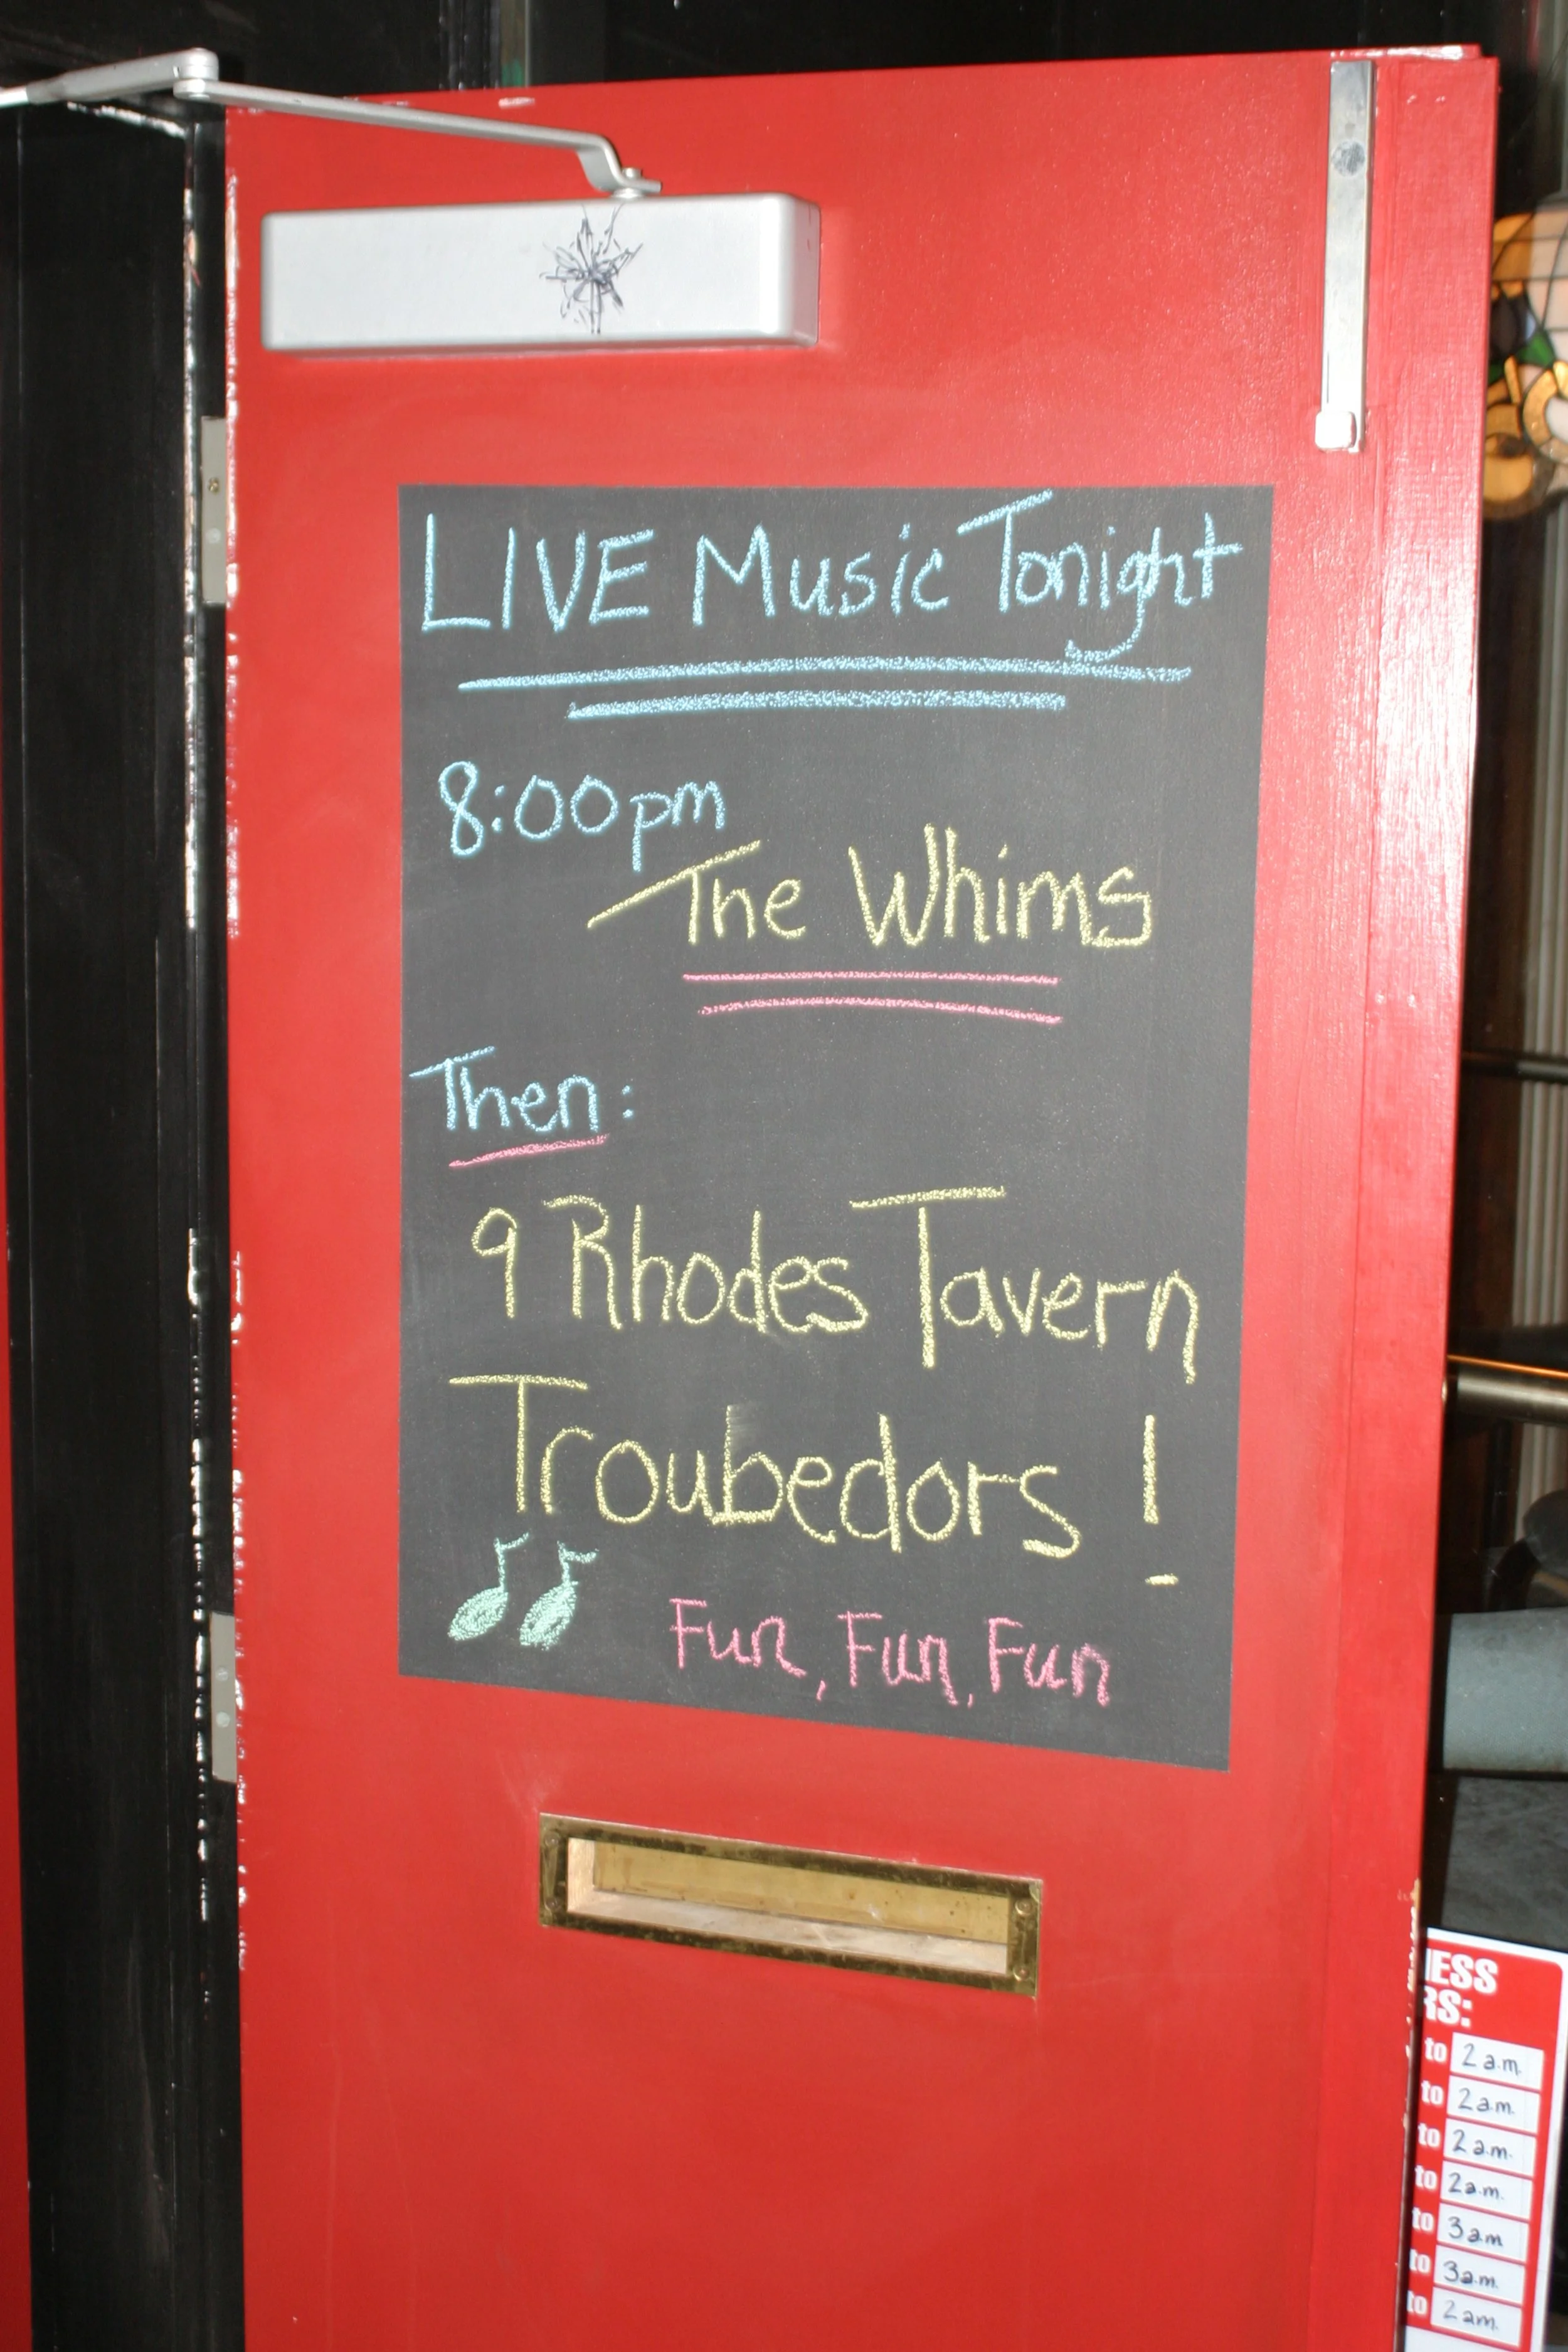 LIVE Music Tonight
8:00pm
The Whims
Then:
9 Rhodes Tavern
Troubedors!
Fun, Fun, Fun
ESS
RS:
to 2 a.m.
to 2 a.m.
to 2 a.m.
to 2 a.m.
to 3 am
to 3 a.m.
to 2 am.